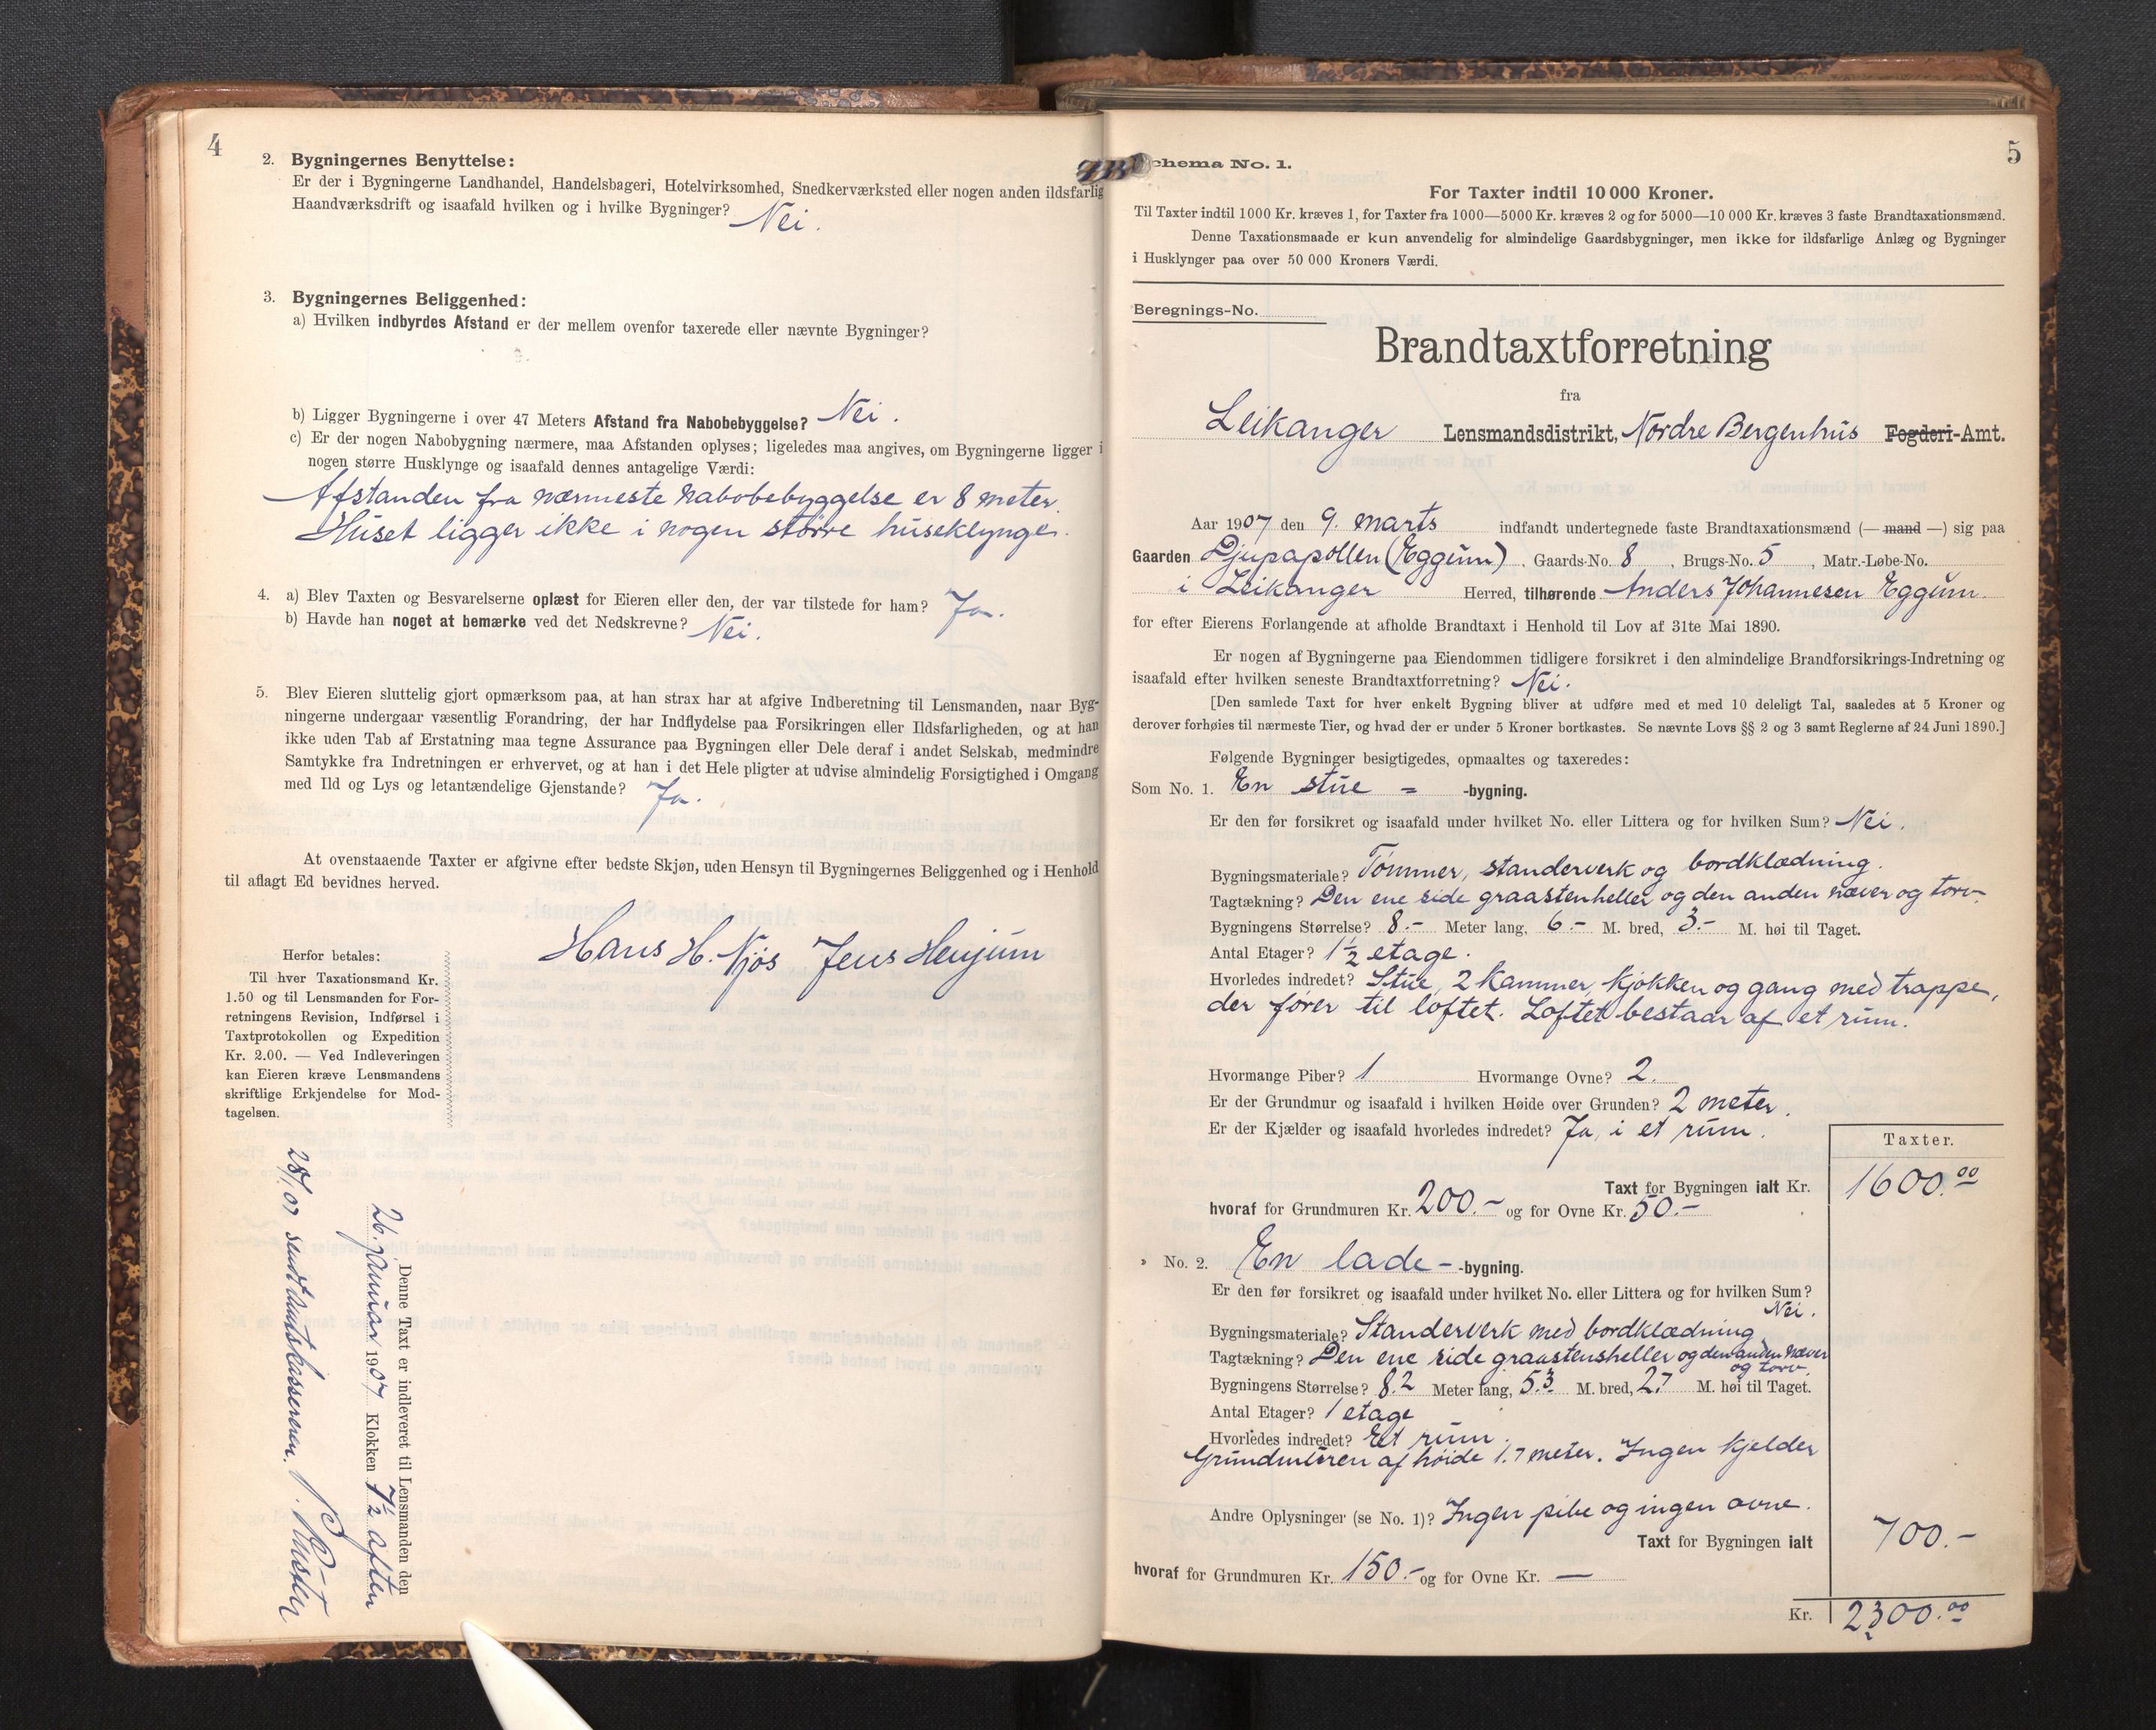 4
2. Bygningernes Benyttelse:
Er der i Bygningerne Landhandel, Handelsbageri, Hotelvirksomhed, Snedkerværksted eller nogen anden ildsfarlig
Haandværksdrift og isaafald hvilken og i hvilke Bygninger? Nei.
3. Bygningernes Beliggenhed:
a) Hvilken indbyrdes Afstand er der mellem ovenfor taxerede eller nævnte Bygninger?
b) Ligger Bygningerne i over 47 Meters Afstand fra Nabobebyggelse? Nei.
c) Er der nogen Nabobygning nærmere, maa Afstanden oplyses; ligeledes maa angives, om Bygningerne ligger i
nogen større Husklynge og isaafald dennes antagelige Værdi:
Afstanden fra nærmeste nabobebyggelse er 8 meter.
Huset ligger ikke i nogen større huseklynge.
4. a) Blev Taxten og Besvarelserne oplæst for Eieren eller den, der var tilstede for ham? Ja.
b) Havde han noget at bemærke ved det Nedskrevne? Nei.
5. Blev Eieren sluttelig gjort opmærksom paa, at han strax har at afgive Indberetning til Lensmanden, naar Byg-
ningerne undergaar væsentlig Forandring, der har Indflydelse paa Forsikringen eller Ildsfarligheden, og at han
ikke uden Tab af Erstatning maa tegne Assurance paa Bygningen eller Dele deraf i andet Selskab, medmindre
Samtykke fra Indretningen er erhvervet, og at han i det Hele pligter at udvise almindelig Forsigtighed i Omgang
med Ild og Lys og letantændelige Gjenstande? Ja.
At ovenstaaende Taxter er afgivne efter bedste Skjøn, uden Hensyn til Bygningernes Beliggenhed og i Henhold
til aflagt Ed bevidnes herved.
Hans H. Njøs Jens Henjum
Herfor betales:
Til hver Taxationsmand Kr.
1.50 og til Lensmanden for For-
retningens Revision, Indførsel i
Taxtprotokollen og Expedition
Kr. 2.00. — Ved Indleveringen
kan Eieren kræve Lensmandens
skriftlige Erkjendelse for Mod-
tagelsen.
Denne Taxt er indleveret til Lensmanden den
26. januar 1907 Klokken 7½ aften
28/ 07 sendt amtskassereren.
chema No. 1.
5
For Taxter indtil 10 000 Kroner.
Til Taxter indtil 1000 Kr. kræves 1, for Taxter fra 1000—5000 Kr. kræves 2 og for 5000—10 000 Kr. kræves 3 faste Brandtaxationsmænd.
Denne Taxationsmaade er kun anvendelig for almindelige Gaardsbygninger, men ikke for ildsfarlige Anlæg og Bygninger
i Husklynger paa over 50 000 Kroners Værdi.
Beregnings-No.
Brandtaxtforretning
fra
Leikanger Lensmandsdistrikt, Nordre Bergenhus Fogderi-Amt.
Aar 1907 den 9. marts indfandt undertegnede faste Brandtaxationsmænd (— mand —) sig paa
Gaarden Djupapollen (Eggum), Gaards-No. 8, Brugs-No. 5, Matr.-Løbe-No.
i Leikanger Herred, tilhørende Anders Johannesen Eggum.
for efter Eierens Forlangende at afholde Brandtaxt i Henhold til Lov af 31te Mai 1890.
Er nogen af Bygningerne paa Eiendommen tidligere forsikret i den almindelige Brandforsikrings-Indretning og
isaafald efter hvilken seneste Brandtaxtforretning? Nei.
[Den samlede Taxt for hver enkelt Bygning bliver at udføre med et med 10 deleligt Tal, saaledes at 5 Kroner og
derover forhøies til nærmeste Tier, og hvad der er under 5 Kroner bortkastes. Se nævnte Lovs §§ 2 og 3 samt Reglerne af 24 Juni 1890.]
Følgende Bygninger besigtigedes, opmaaltes og taxeredes:
Som No. 1. En stue = -bygning.
Er den før forsikret og isaafald under hvilket No. eller Littera og for hvilken Sum? Nei.
Bygningsmateriale? Tømmer, standerverk og bordklædning.
Tagtækning? Den ene side graastenheller og den anden næver og torv.
Bygningens Størrelse? 8.- Meter lang, 6.- M. bred, 3.- M. høi til Taget.
Antal Etager? 1½ etage.
Hvorledes indredet? Stue, 2 kammer, kjøkken og gang med trappe,
der fører til loftet. Loftet bestaar af et rum.
Hvormange Piber? 1 Hvormange Ovne? 2.
Er der Grundmur og isaafald i hvilken Høide over Grunden? 2 meter.
Er der Kjælder og isaafald hvorledes indredet? Ja, i et rum.
Taxter.
Taxt for Bygningen ialt Kr. 1600.00
hvoraf for Grundmuren Kr. 200.- og for Ovne Kr. 50.-
» No. 2. En lade - -bygning.
Er den før forsikret og isaafald under hvilket No. eller Littera og for hvilken Sum?
Nei.
Bygningsmateriale? Standerverk med bordklædning
Tagtækning? Den ene side graastensheller og den anden næver
og torv.
Bygningens Størrelse? 8.2 Meter lang, 5.3 M. bred, 2.7 M. høi til Taget.
Antal Etager? 1 etage
Hvorledes indredet? Et rum.
Grundmuren af høide 1.7 meter. Ingen kjelder
Andre Oplysninger (se No. 1)? Ingen pibe og ingen ovne.
Taxt for Bygningen ialt 700.-
hvoraf for Grundmuren Kr. 150.- og for Ovne Kr. —
Kr. 2300.00